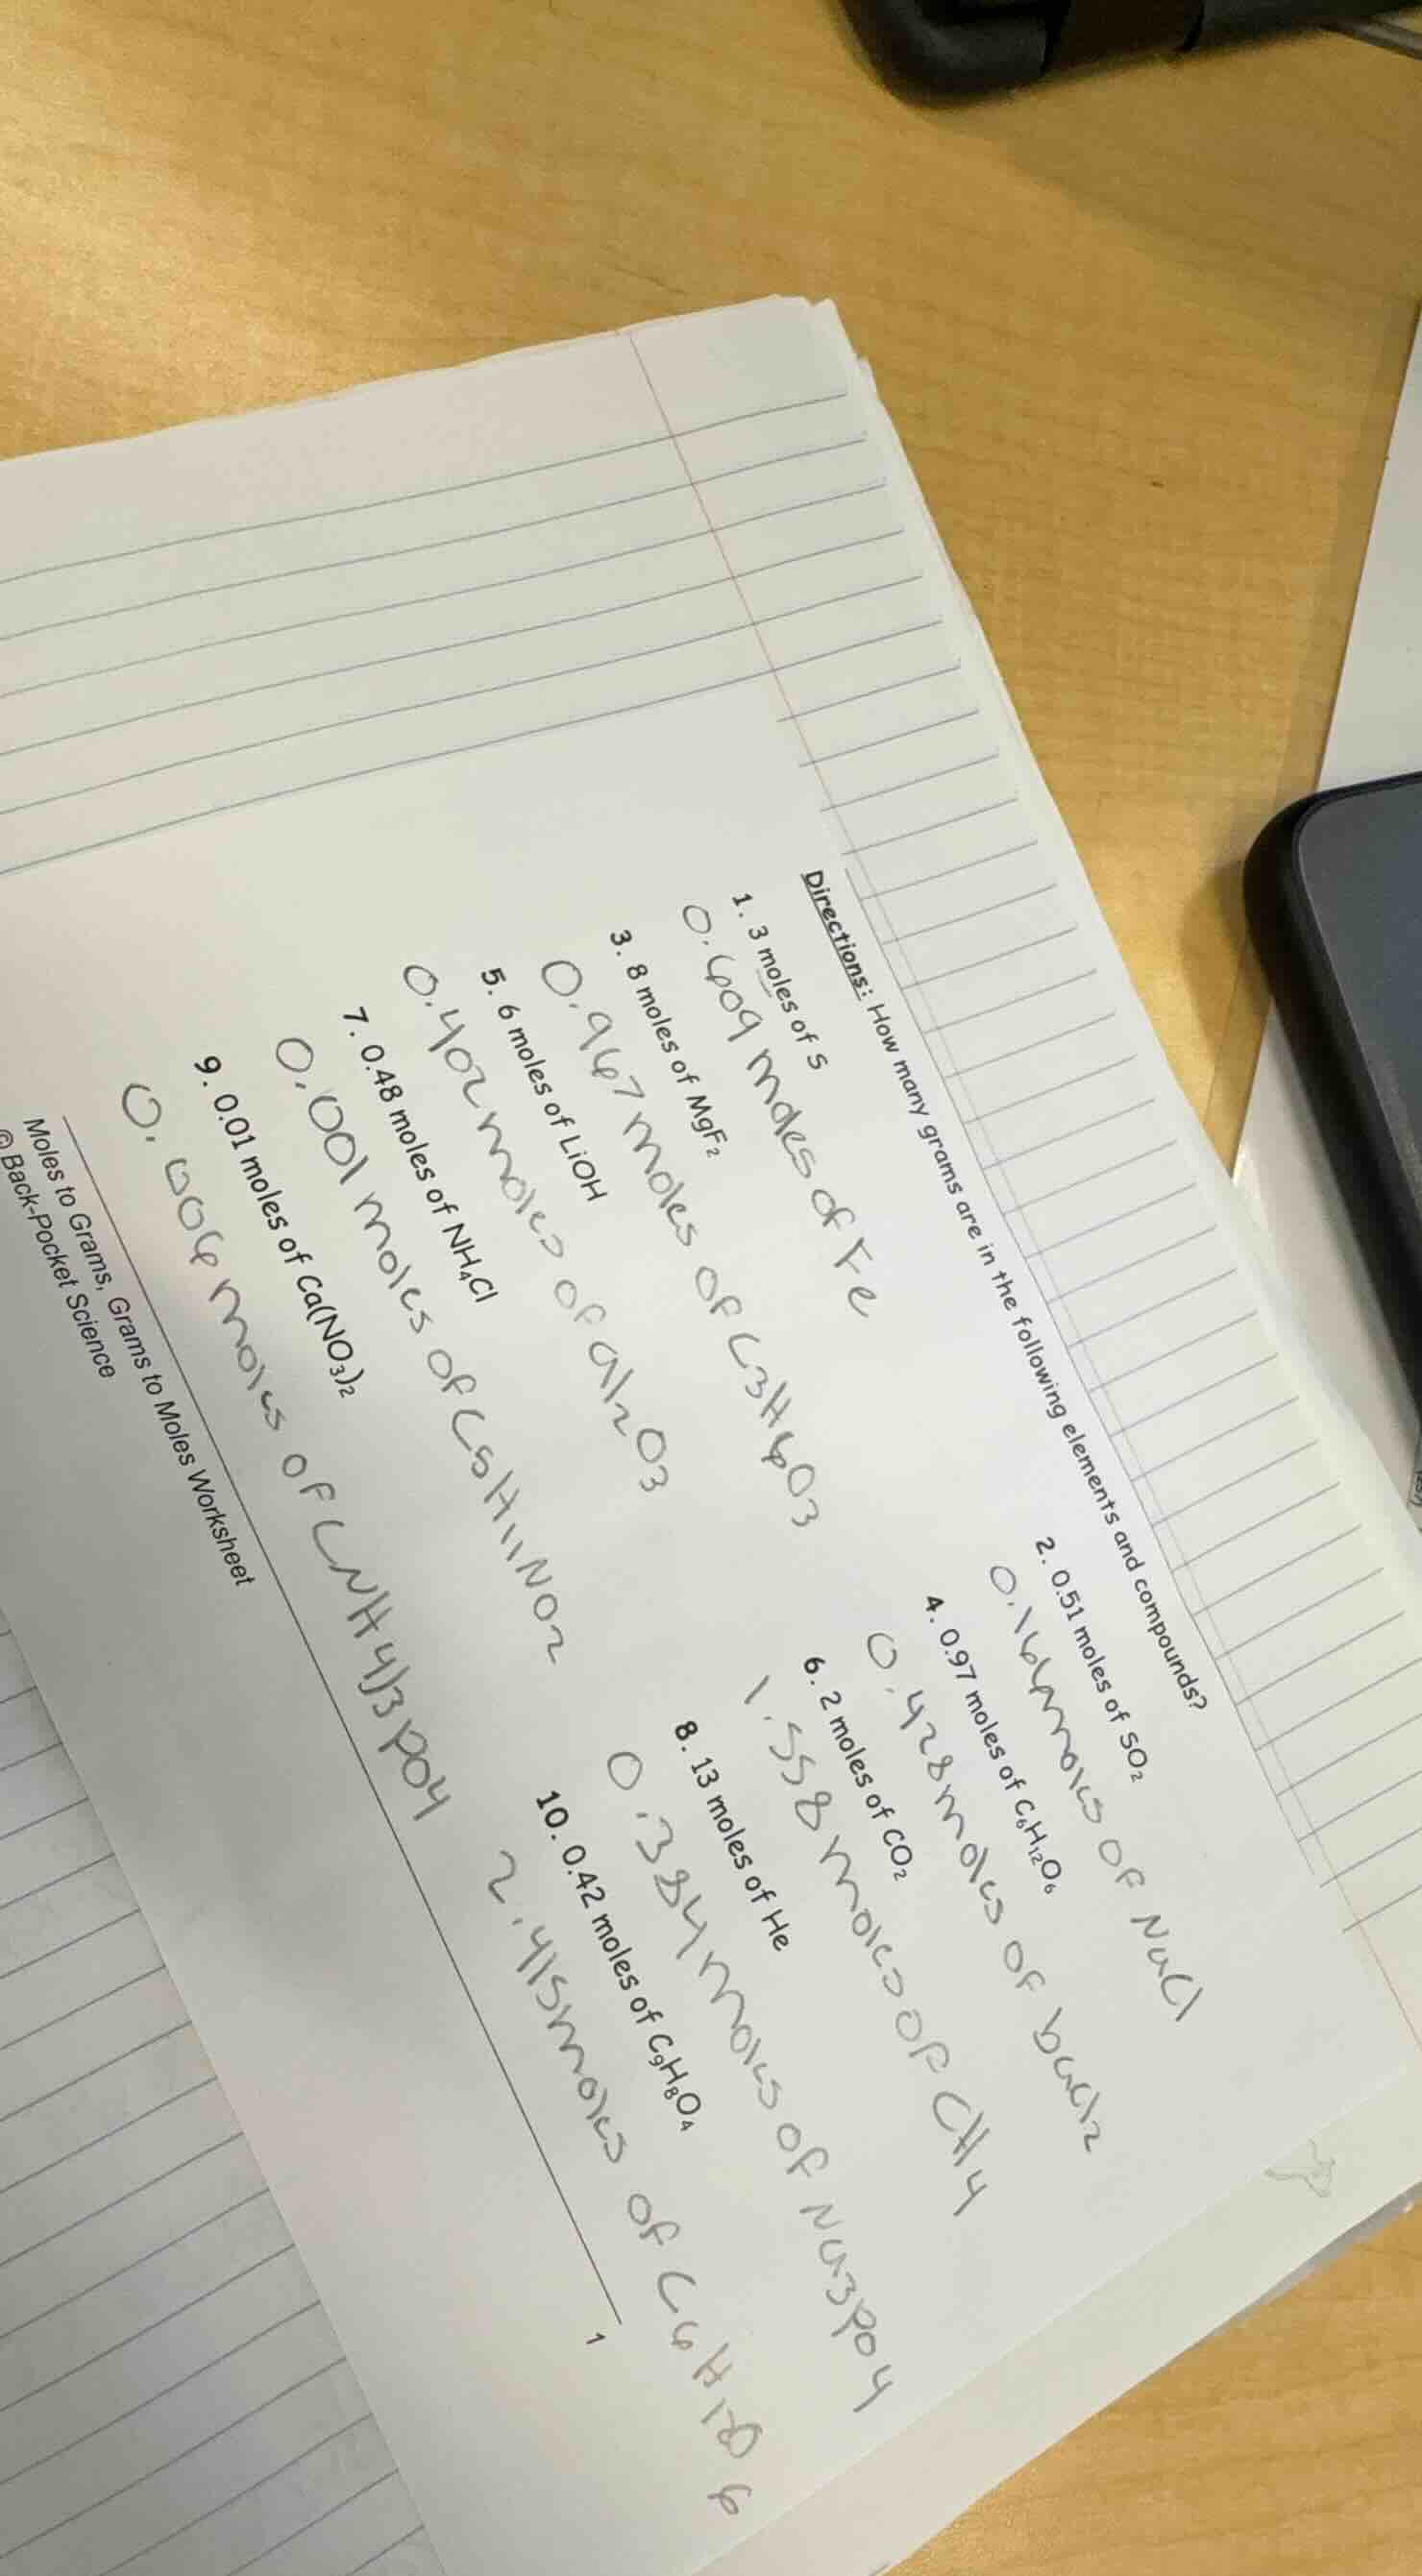 Directions: How many grams are in the following elements and compounds?
1. 3 moles of S
0.609 moles of Fe
2. 0.51 moles of SO₂
moles of NaCl
3. 8 moles of MgF₂
0.967 moles of C3H6O3
4. 0.97 moles of C₆H₁₂O₆
0.428 moles of baCl2
5. 6 moles of LiOH
0.402 moles of al2O3
6. 2 moles of CO₂
1.558 moles of CH4
7. 0.48 moles of NH₄Cl
0.001 moles of C5H11NO2
8. 13 moles of He
0.384 moles of Na3PO4
9. 0.01 moles of Ca(NO₃)₂
0.006 moles of (NH4)3PO4
10. 0.42 moles of C₉H₈O₄
2.415 moles of C6H12O6
Moles to Grams, Grams to Moles Worksheet
© Back-Pocket Science
1